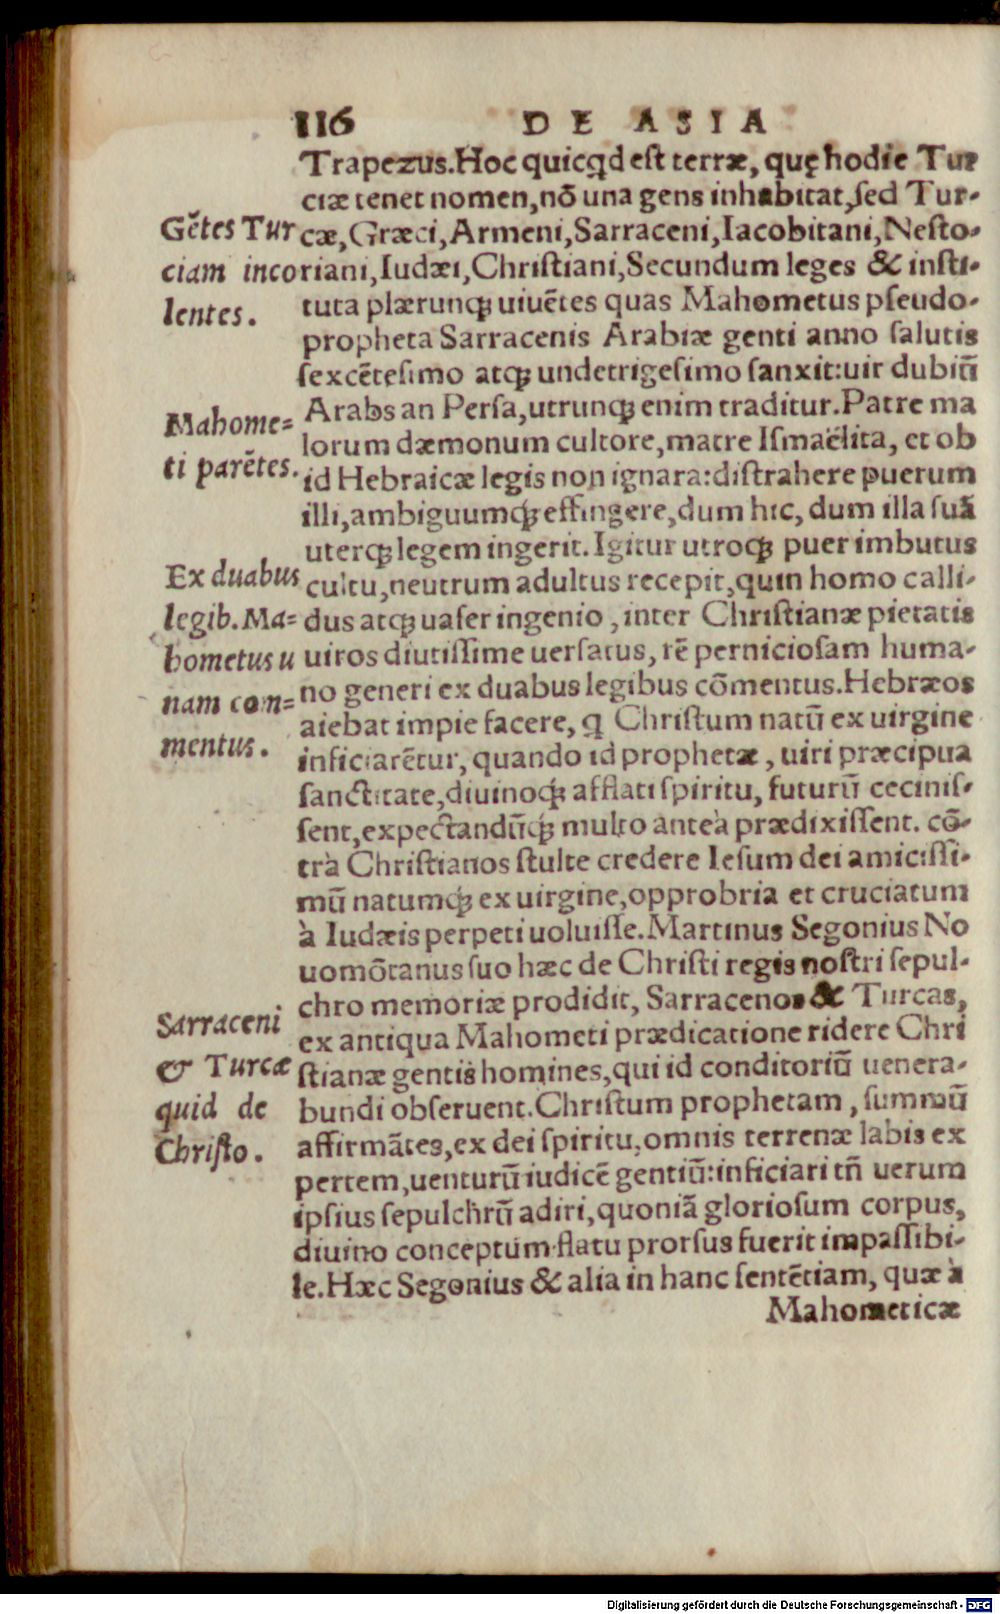 116 DE ASIA
Trapezus.Hoc quicqd est terræ, quę hodie Tur
ciæ tenet nomen,nō una gens inhabitat,sed Tur-
cæ,Græci,Armeni,Sarraceni,Iacobitani,Nesto-
riani,Iudæi,Christiani,Secundum leges & insti-
tuta plærunq; uiuētes quas Mahometus pseudo-
propheta Sarracenis Arabiæ genti anno salutis
sexcētesimo atq; undetrigesimo sanxit:uir dubiū
Arabs an Persa,utrunq; enim traditur.Patre ma
lorum dæmonum cultore,matre Ismaëlita, et ob
id Hebraicæ legis non ignara:distrahere puerum
illi,ambiguumq; effingere,dum hic, dum illa suā
uterq; legem ingerit. Igitur utroq; puer imbutus
cultu,neutrum adultus recepit,quin homo calli-
dus atq; uafer ingenio, inter Christianæ pietatis
uiros diutissime uersatus, rē perniciosam huma-
no generi ex duabus legibus cōmentus.Hebræos
aiebat impie facere, q Christum natū ex uirgine
inficiarētur, quando id prophetæ, uiri præcipua
sanctitate,diuinoq; afflati spiritu, futurū cecinis-
sent,expectandūq; multo anteà prædixissent. cō-
trà Christianos stulte credere Iesum dei amicissi-
mū natumq; ex uirgine,opprobria et cruciatum
à Iudæis perpeti uoluisse.Martinus Segonius No
uomōtanus suo hæc de Christi regis nostri sepul-
chro memoriæ prodidit, Sarracenos & Turcas,
ex antiqua Mahometi prædicatione ridere Chri
stianæ gentis homines,qui id conditoriū uenera-
bundi obseruent.Christum prophetam, summū
affirmātes,ex dei spiritu,omnis terrenæ labis ex
pertem,uenturū iudicē gentiū:inficiari tñ uerum
ipsius sepulchrū adiri,quoniā gloriosum corpus,
diuino conceptum flatu prorsus fuerit impassibi-
le.Hæc Segonius & alia in hanc sentētiam, quæ à
Mahometicæ
Gētes Tur
ciam inco
lentes.
Mahome=
ti parētes.
Ex duabus
legib.Ma=
hometus u
nam com=
mentus.
Sarraceni
& Turcæ
quid de
Christo.
Digitalisierung gefördert durch die Deutsche Forschungsgemeinschaft - DFG